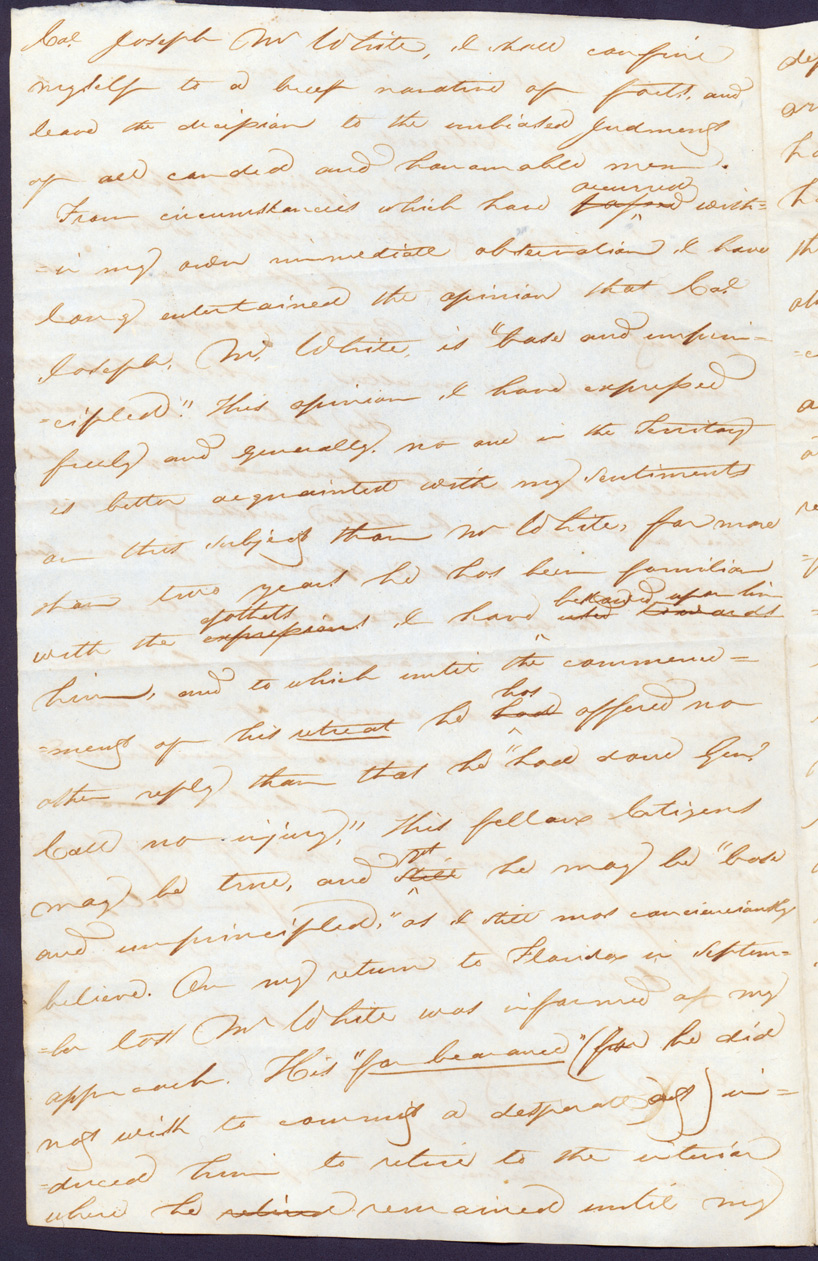 Col Joseph M White, I shall confine
myself to a brief narative of facts, and
leave the decission to the unbiased Judment
of all candid and honourable men.
occurred
From circumstances which have passed with=
=in my own immediate observation I have
long entertained the opinion that Col
Joseph. M. White, is "base and unprin=
=cipled." This opinion I have expressed
freely and generally. no one in the Territory
is better acquainted with my sentiments
on this subject than Mr White, for more
than two years he has been familiar
epithets bestowed upon him
with the expressions I have used towards
him, and to which until the commence=
has
=ment of his retreat he had offered no
other reply than that he "had done Genl
Call no injury," This fellow Citizens
yet
may be true, and still he may be "base
and unprincipled," as I still most conscienciously
believe. On my return to Florida in Septem=
=ber last Mr White was informed of my
approach. His "forbearance" (for he did
not wish to commit a desperate act) in=
=duced him to retire to the interior
where he retired remained until my